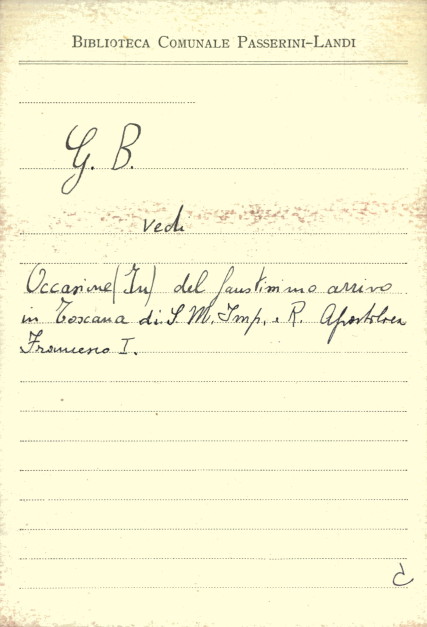 BIBLIOTECA COMUNALE PASSERINI-LANDI
G. B.
vedi
Occasione (In) del faustissimo arrivo
in Toscana di S. M. Imp. e R. Apostolica
Francesco I.